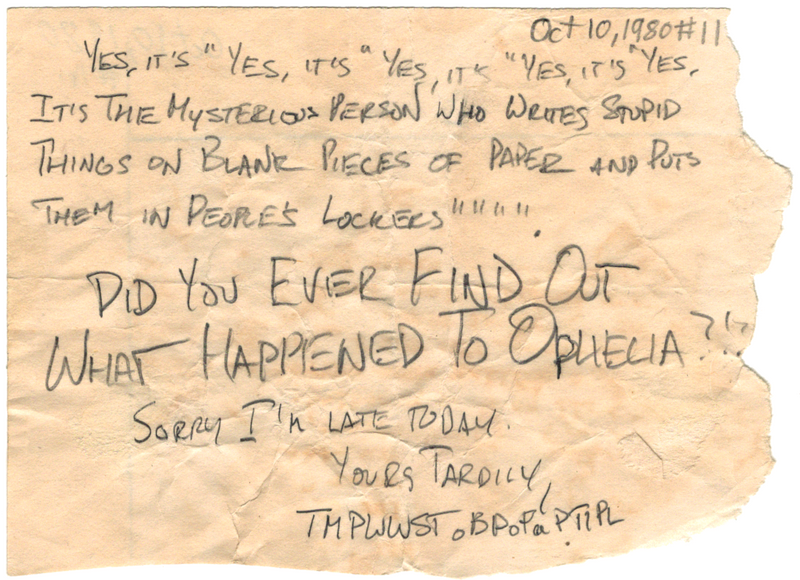 Oct 10, 1980 #11
YES, IT'S "YES, IT'S "YES, IT'S "YES, IT'S "YES,
IT'S THE MYSTERIOUS PERSON WHO WRITES STUPID
THINGS ON BLANK PIECES OF PAPER AND PUTS
THEM IN PEOPLE'S LOCKERS""""".
DID YOU EVER FIND OUT
WHAT HAPPENED TO OPHELIA?!?
SORRY I'M LATE TODAY.
YOURS TARDILY,
TMPWWSToBPoPaPTIPL